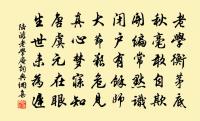 老學衡茅底
秋毫敢自欺
開編常默識
閉戶有餘師
大節艱危見
真心夢寐知
唐虞元在眼
生世未為遲
陸游老學庵詞典網集